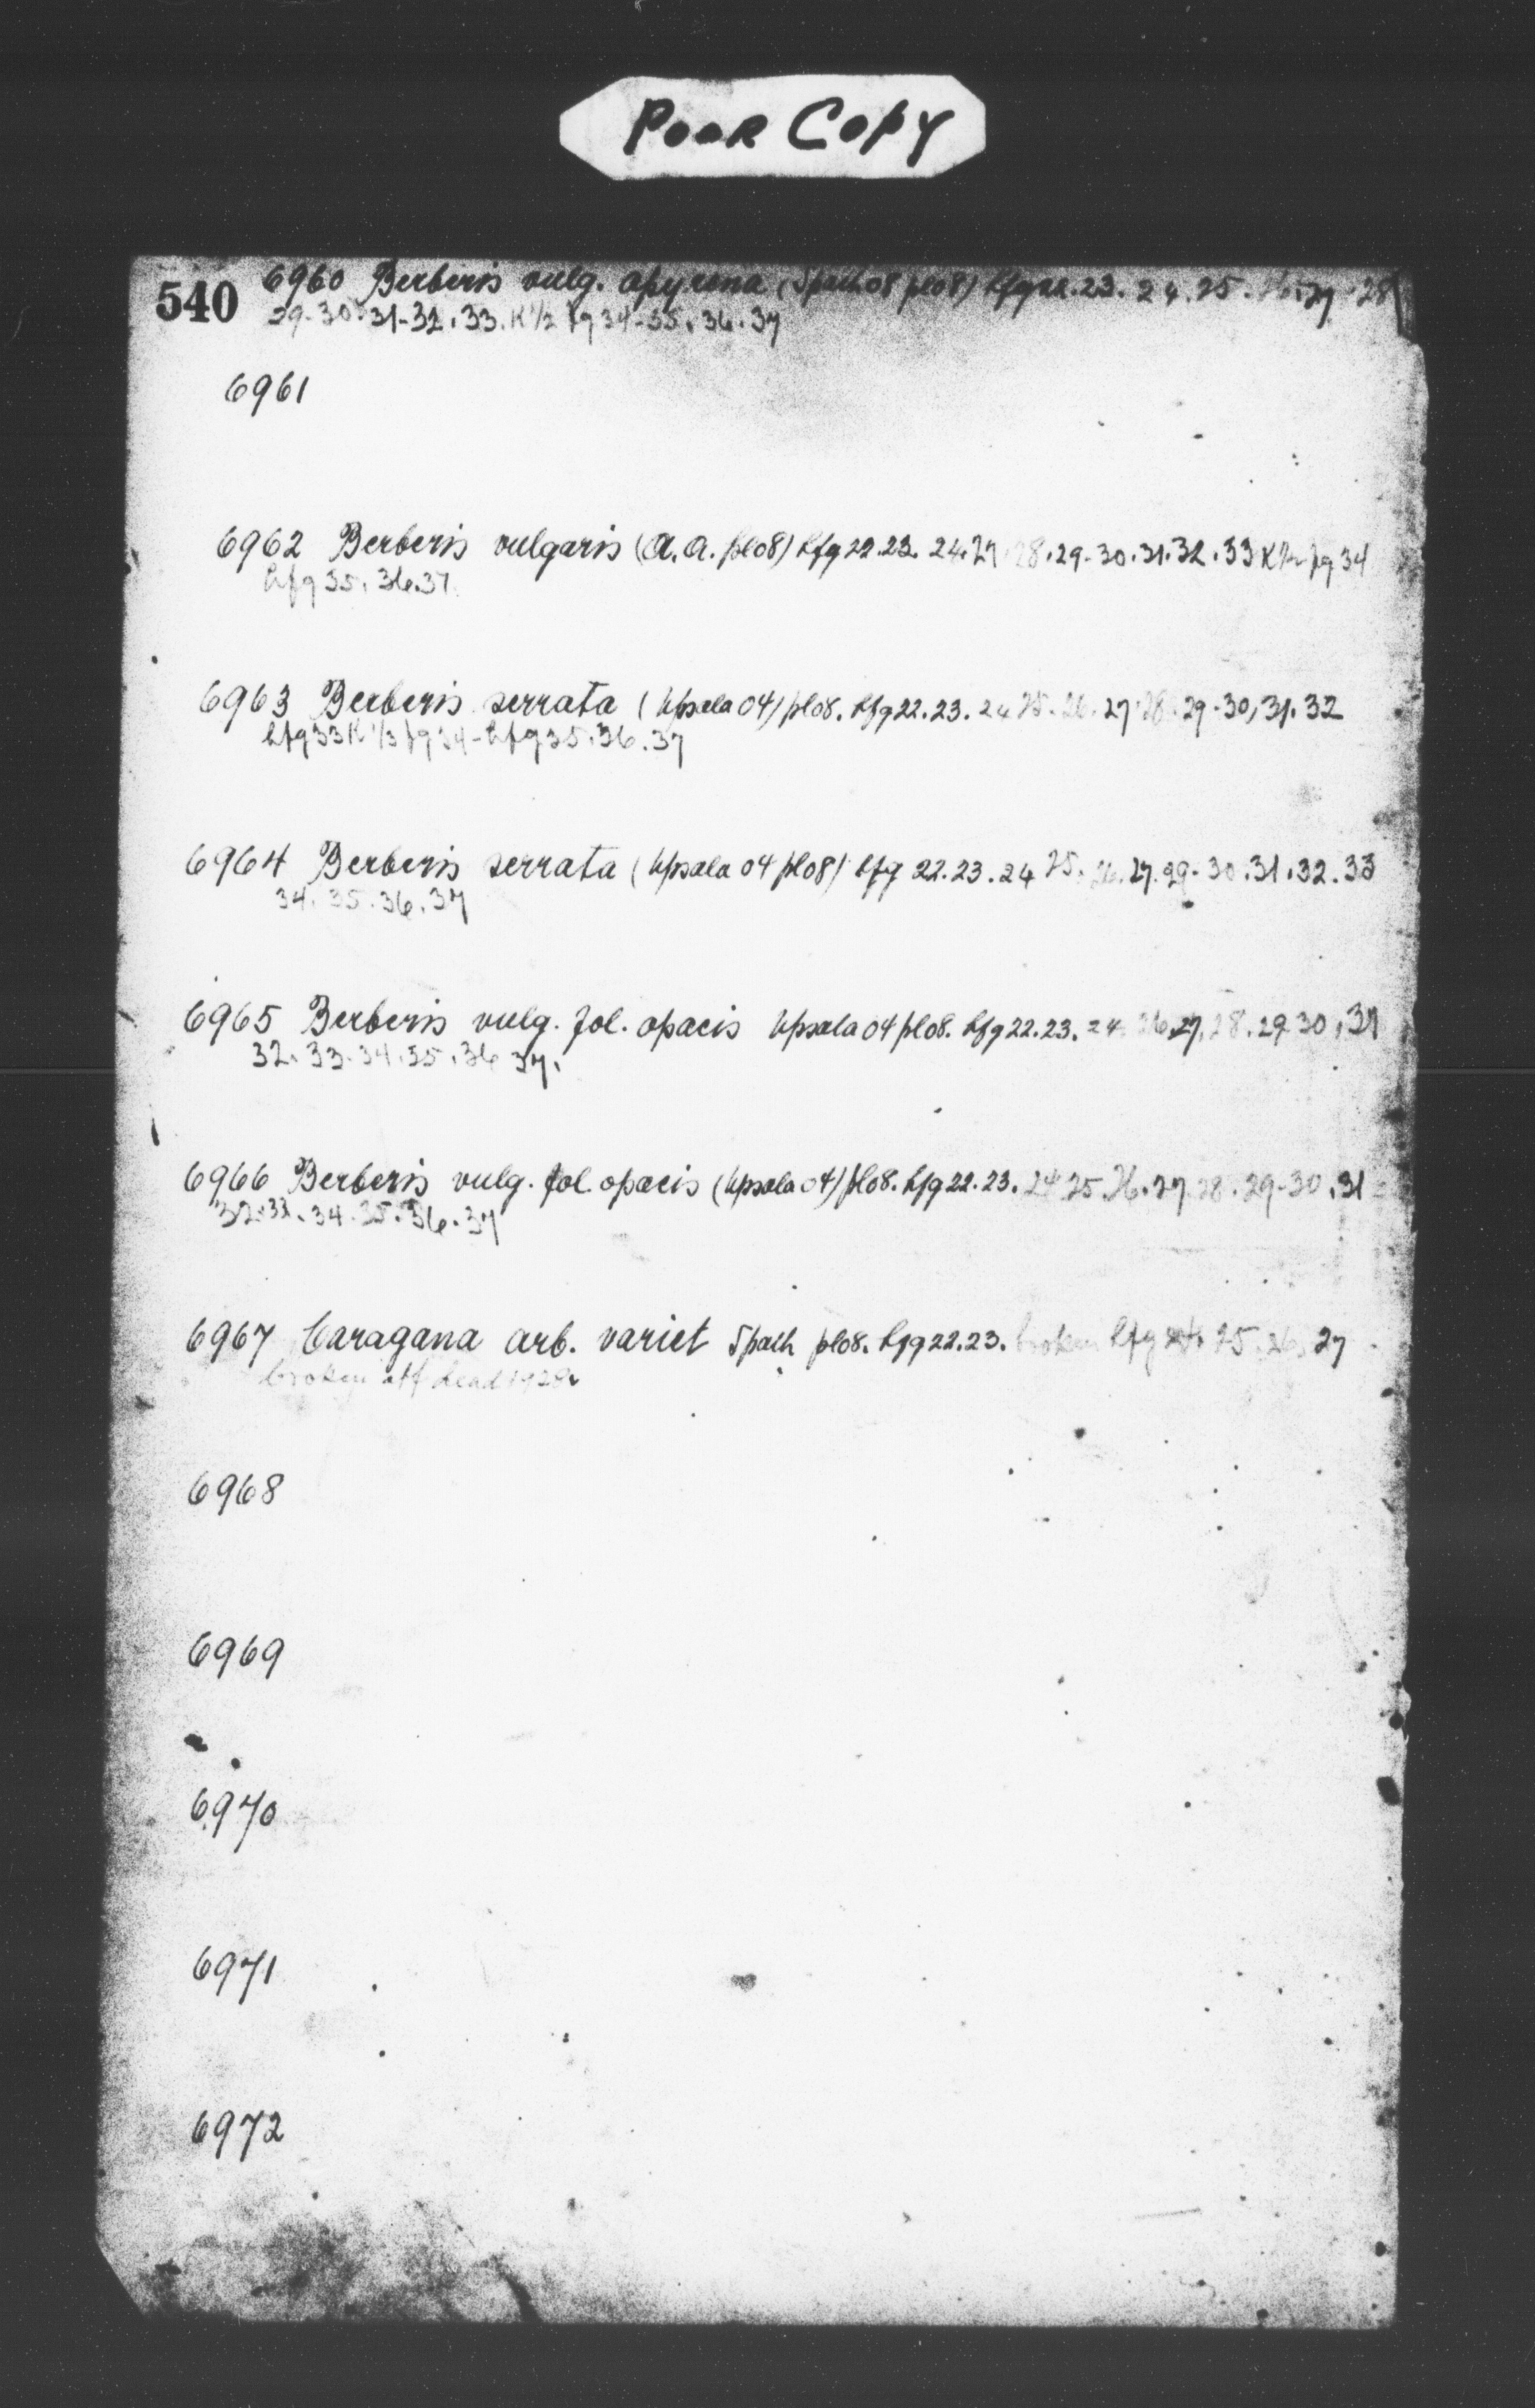 Poor Copy
540 6960 Berberis vulg. apyrena (Spath 08 pl08) hfg 22.23. 24.25. 26.27.28
29-30.31-32.33. K 1/2 fg 34-35.36.37
6961
6962 Berberis vulgaris (A.A. pl08) hfg 22.23. 24.27.28.29-30.31.32.33 K 1/2 fg 34
hfg 35.36.37
6963 Berberis serrata (Upsala 04) pl08. hfg 22.23.24 25.26.27.28.29-30,31.32
hfg 33 K 1/3 fg 34-hfg 35.36.37
6964 Berberis serrata (Upsala 04 pl08) hfg 22.23.24 25.26.27.29-30.31.32.33
34.35.36.37
6965 Berberis vulg. fol. opacis Upsala 04 pl08. hfg 22.23.24.26.27.28.29.30,31
32.33.34.35.36 37.
6966 Berberis vulg. fol. opacis (Upsala 04) pl08. hfg 22.23.24 25 26.27 28.29-30.31
32.33.34.35.36.37
6967 Caragana arb. variet Spath pl08. hfg 22.23. broken hfg 24.25.26.27
broken off dead 1928
6968
6969
6970
6971
6972